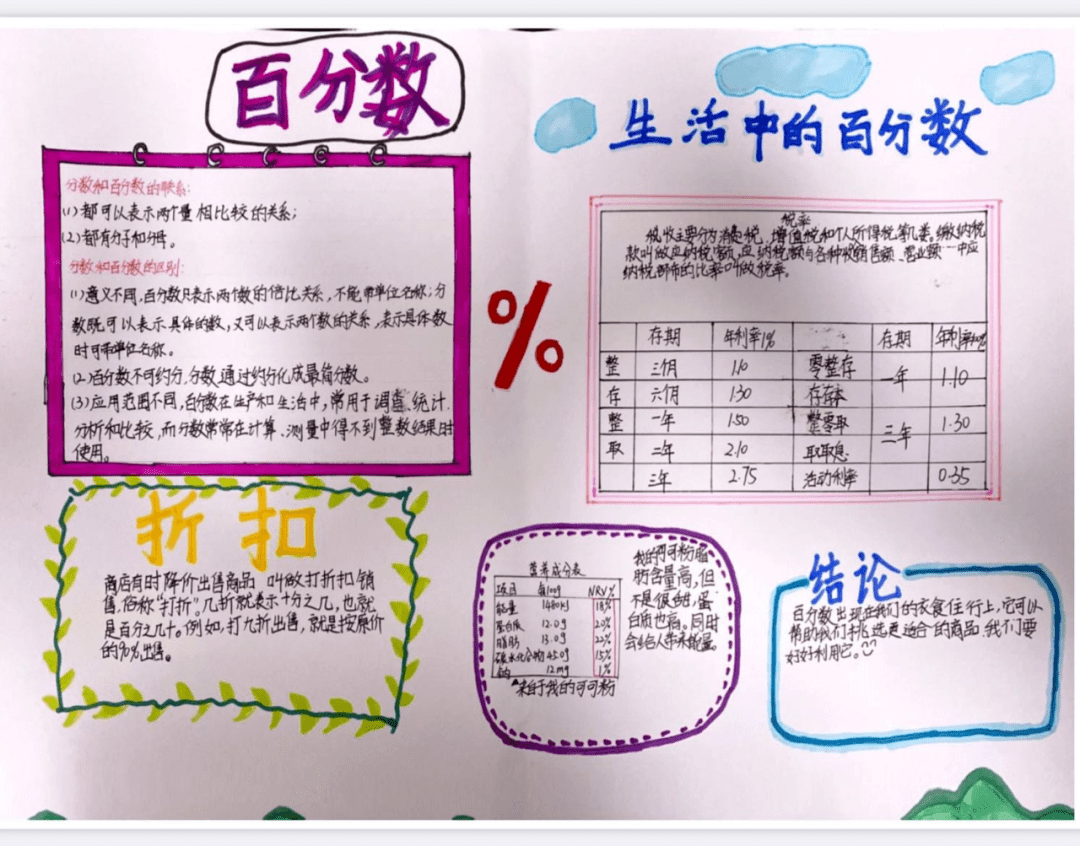 百分数
分数和百分数的联系:
(1)都可以表示两个量相比较的关系;
(2)都有分子和分母。
分数和百分数的区别:
(1)意义不同,百分数只表示两个数的倍比关系,不能带单位名称;分
数既可以表示具体的数,又可以表示两个数的关系,表示具体数
时可带单位名称。
(2)百分数不可约分,分数通过约分化成最简分数。
(3)应用范围不同,百分数在生产和生活中,常用于调查、统计.
分析和比较,而分数常常在计算、测量中得不到整数结果时
使用。
%
生活中的百分数
税率
税收主要分为消费税、增值税和个人所得税等几类。缴纳税
款叫做应纳税额,应纳税额与各种收销售额、营业额…中应
纳税部分的比率叫做税率。
存期 年利率1% 存期 年利率%
整 三个月 1.10 零整存 一年 1.10
存 六个月 1.30 存存本
整 一年 1.50 整零取 三年 1.30
取 二年 2.10 取取息
三年 2.75 活动利率 0.35
折扣
商店有时降价出售商品 叫做打折扣销
售,俗称“打折”。几折就表示十分之几,也就
是百分之几十。例如,打九折出售,就是按原价
的90%出售。
营养成分表
项目 每100g NRV%
能量 1480kJ 18%
蛋白质 12.0g 20%
脂肪 13.0g 22%
碳水化合物 45.0g 15%
钠 12mg 1%
▲来自于我的可可粉
我的可可粉脂
肪含量高,但
不是很甜,蛋
白质也高。同时
会给人带来能量。
结论
百分数出现在我们的衣食住行上,它可以
帮助我们挑选更适合的商品,我们要
好好利用它。